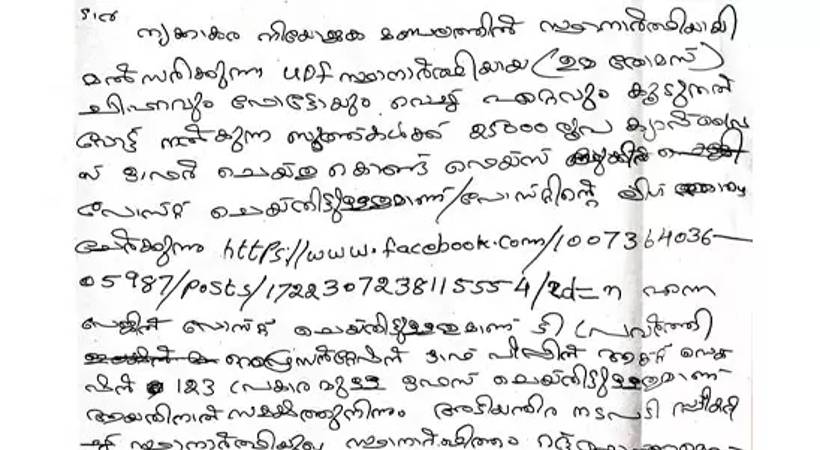 സർ
തൃക്കാകര നിയോജക മണ്ഡലത്തിൽ സ്ഥാനാർത്ഥിയായി
മൽസരിക്കുന്ന UDF സ്ഥാനാർത്ഥിയായ (ഉമ തോമസ്)
ചിഹ്നവും ഫോട്ടോയും വെച്ച് ഏറ്റവും കൂടുതൽ
വോട്ട് നൽകുന്ന ബൂത്തുകൾക്ക് 25000 രൂപ ക്യാഷ് പ്രൈ
സ് ഓഫർ ചെയ്തു കൊണ്ട് ഫെയ്സ്
പോസ്റ്റ് ചെയ്തിട്ടുള്ളതുമാണ്/പോസ്റ്റിന്റെ ലിങ്ക്
ചേർക്കുന്നു https://www.facebook.com/1007364036—
05987/posts/172230723811555-4/?d=n എന്ന
പേജിൽ പോസ്റ്റ് ചെയ്തിട്ടുള്ളതുമാണ് ടി പ്രവർത്തി
റെപ്രസൻറ്റേഷൻ ഓഫ് പീപ്പിൾ ആക്റ്റ് സെക്
ഷൻ 123 പ്രകാരമുള്ള ഒഫൻസ് ചെയ്തിട്ടുള്ളതുമാണ്
ആയതിനാൽ അടിയന്തിര നടപടി സ്വീകരി
സ്ഥാനാർത്ഥിയുടെ സ്ഥാനാർത്ഥിത്വം